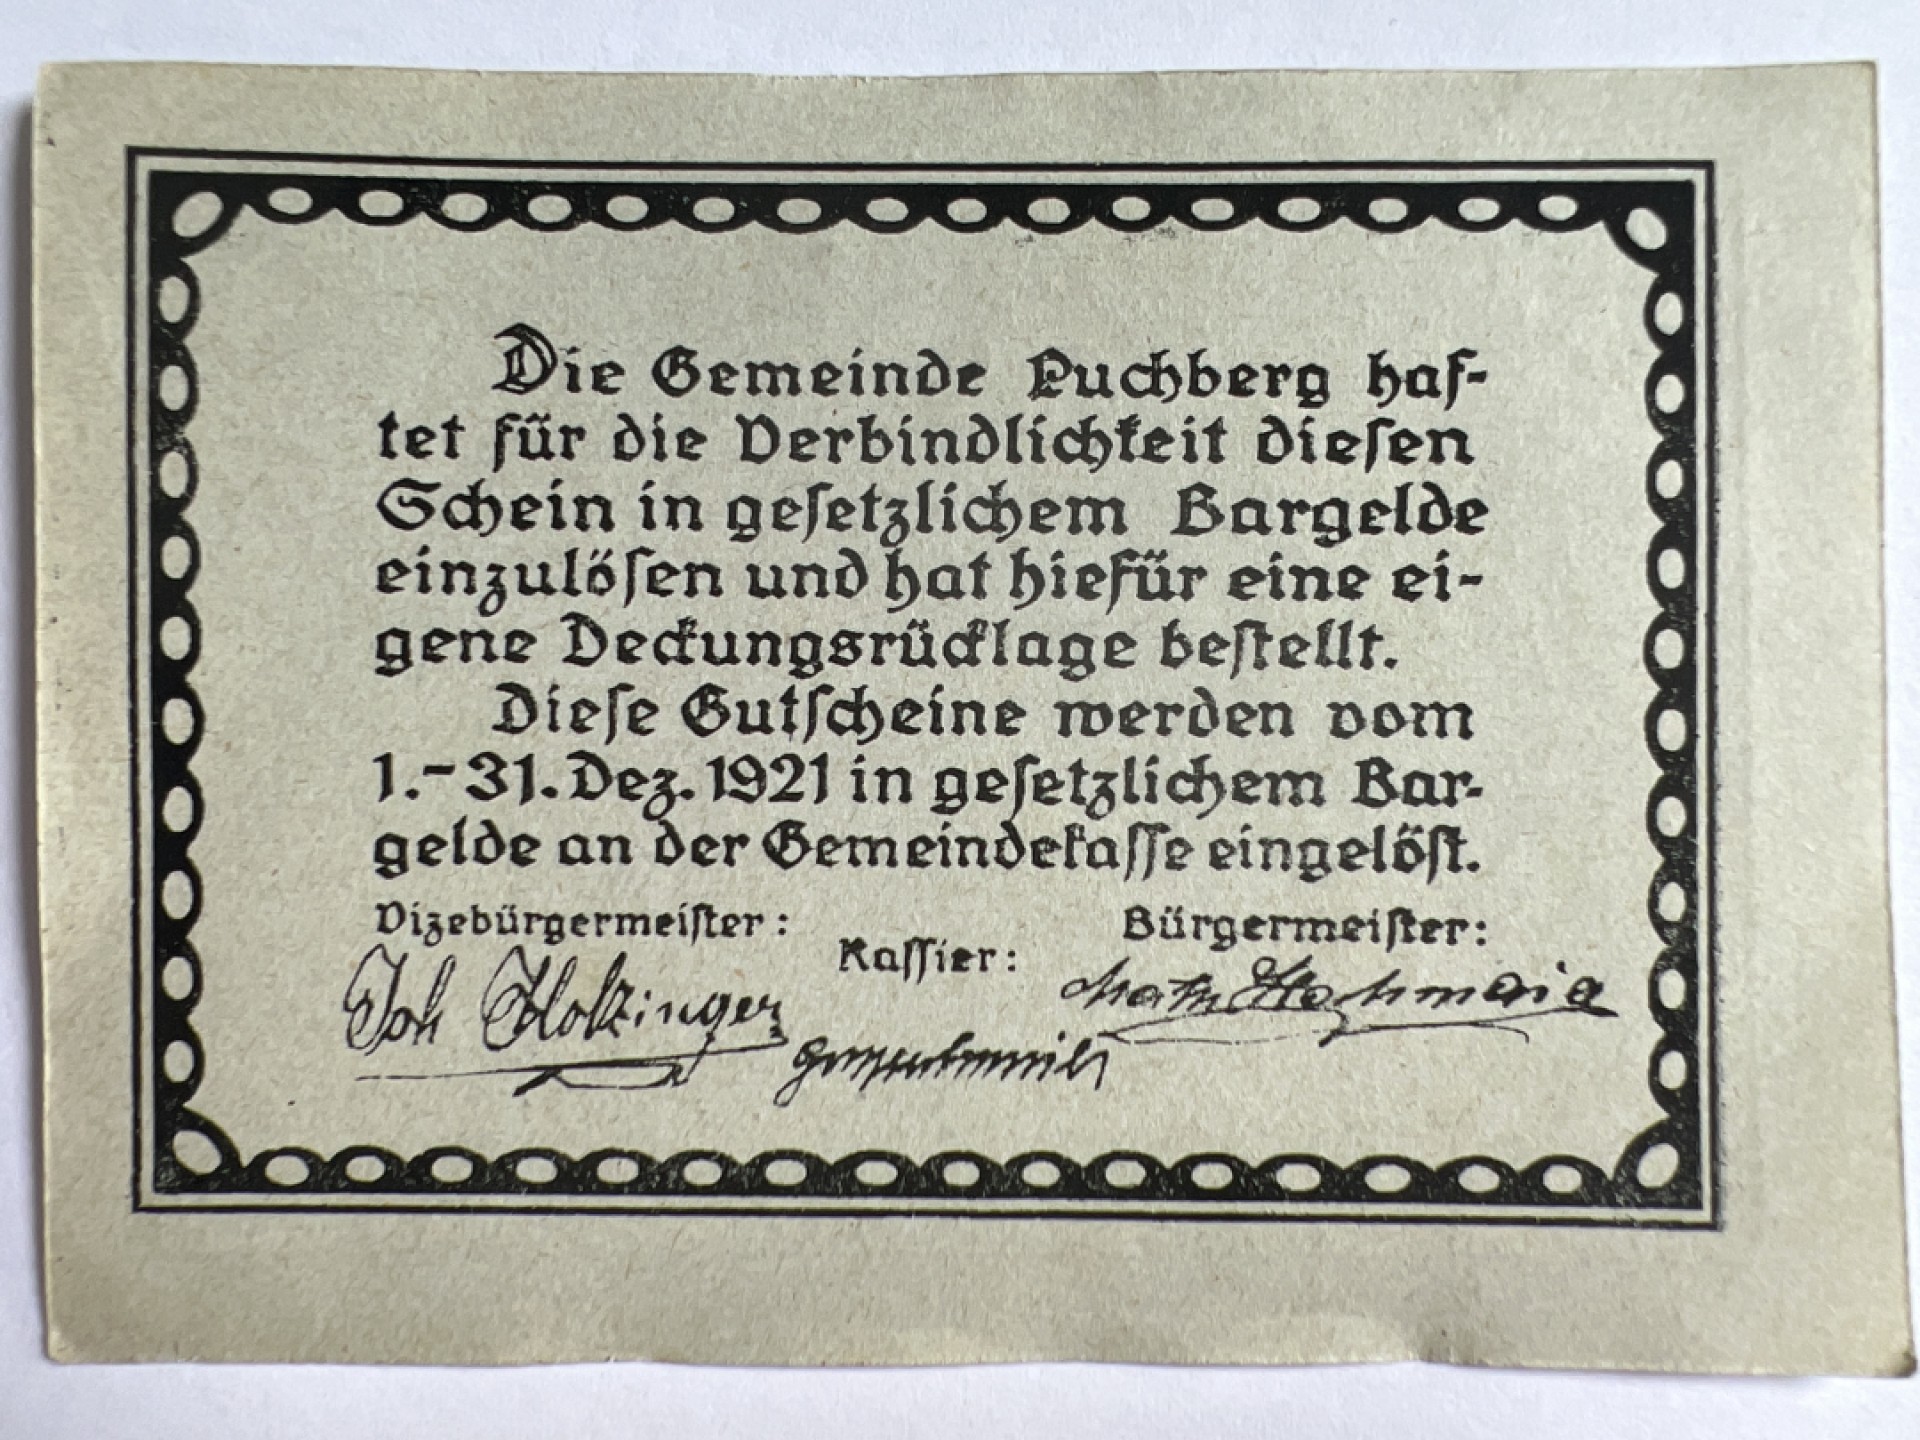 Die Gemeinde Puchberg haf-
tet für die Verbindlichkeit dieſen
Schein in geſetzlichem Bargelde
einzulöſen und hat hiefür eine ei-
gene Deckungsrücklage beſtellt.
Dieſe Gutſcheine werden vom
1.-31. Dez. 1921 in geſetzlichem Bar-
gelde an der Gemeindekaſſe eingelöſt.
Vizebürgermeiſter:
Kaſſier:
Bürgermeiſter:
Joh Holzinger